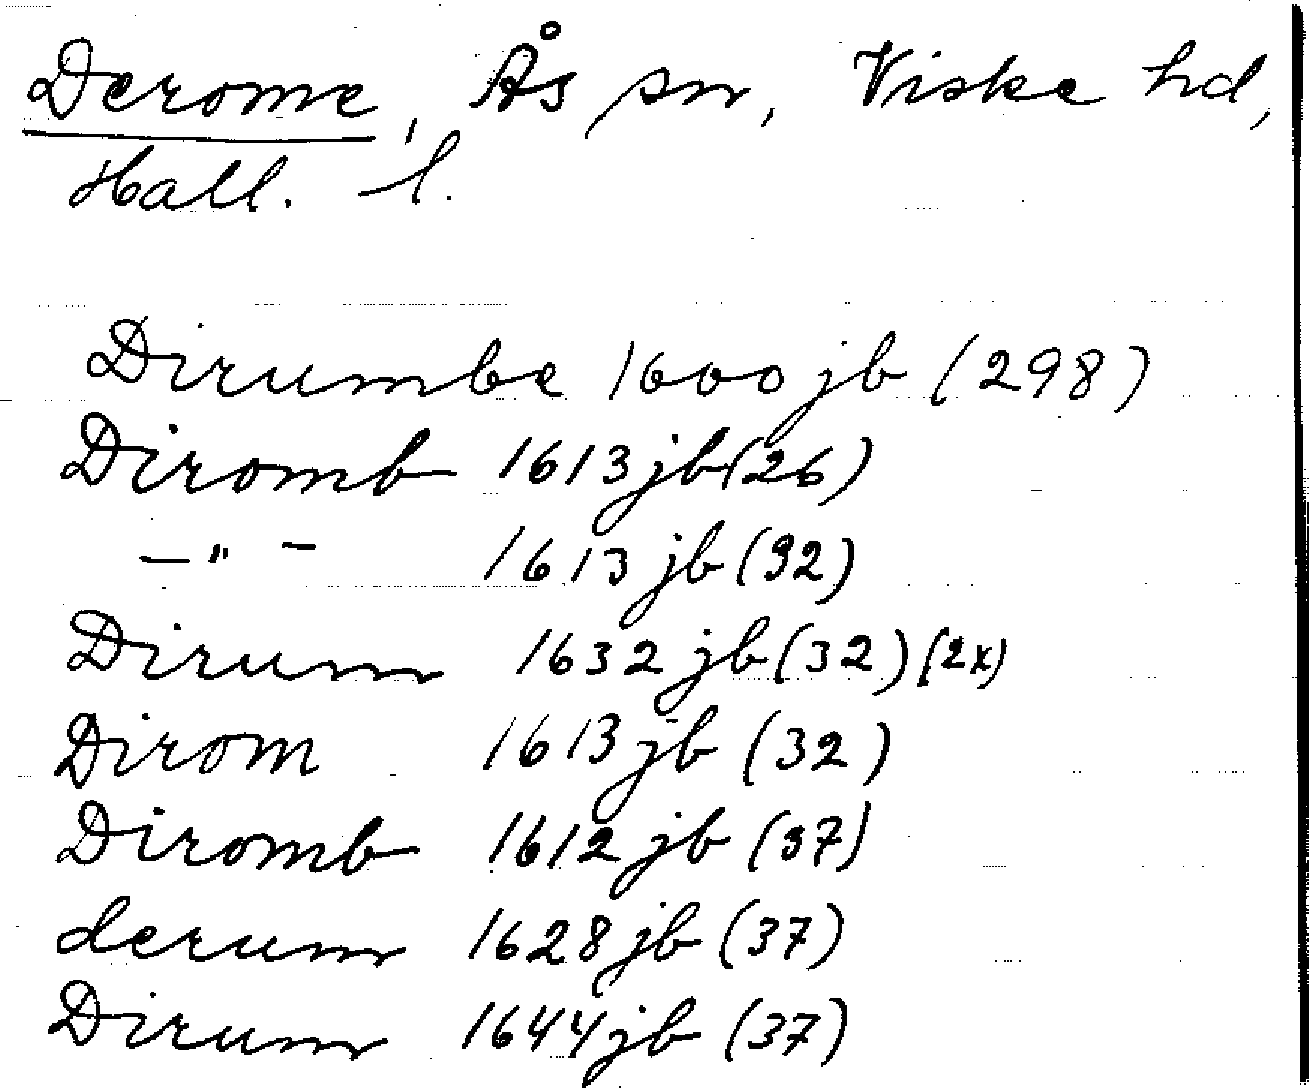 Derome, Ås sn, Viske hd,
Hall. l.
Dirumbe 1600 jb (298)
Diromb 1613 jb (26)
—"— 1613 jb (32)
Dirum 1632 jb (32) (2x)
Dirom 1613 jb (32)
Diromb 1612 jb (37)
derum 1628 jb (37)
Dirum 1644 jb (37)